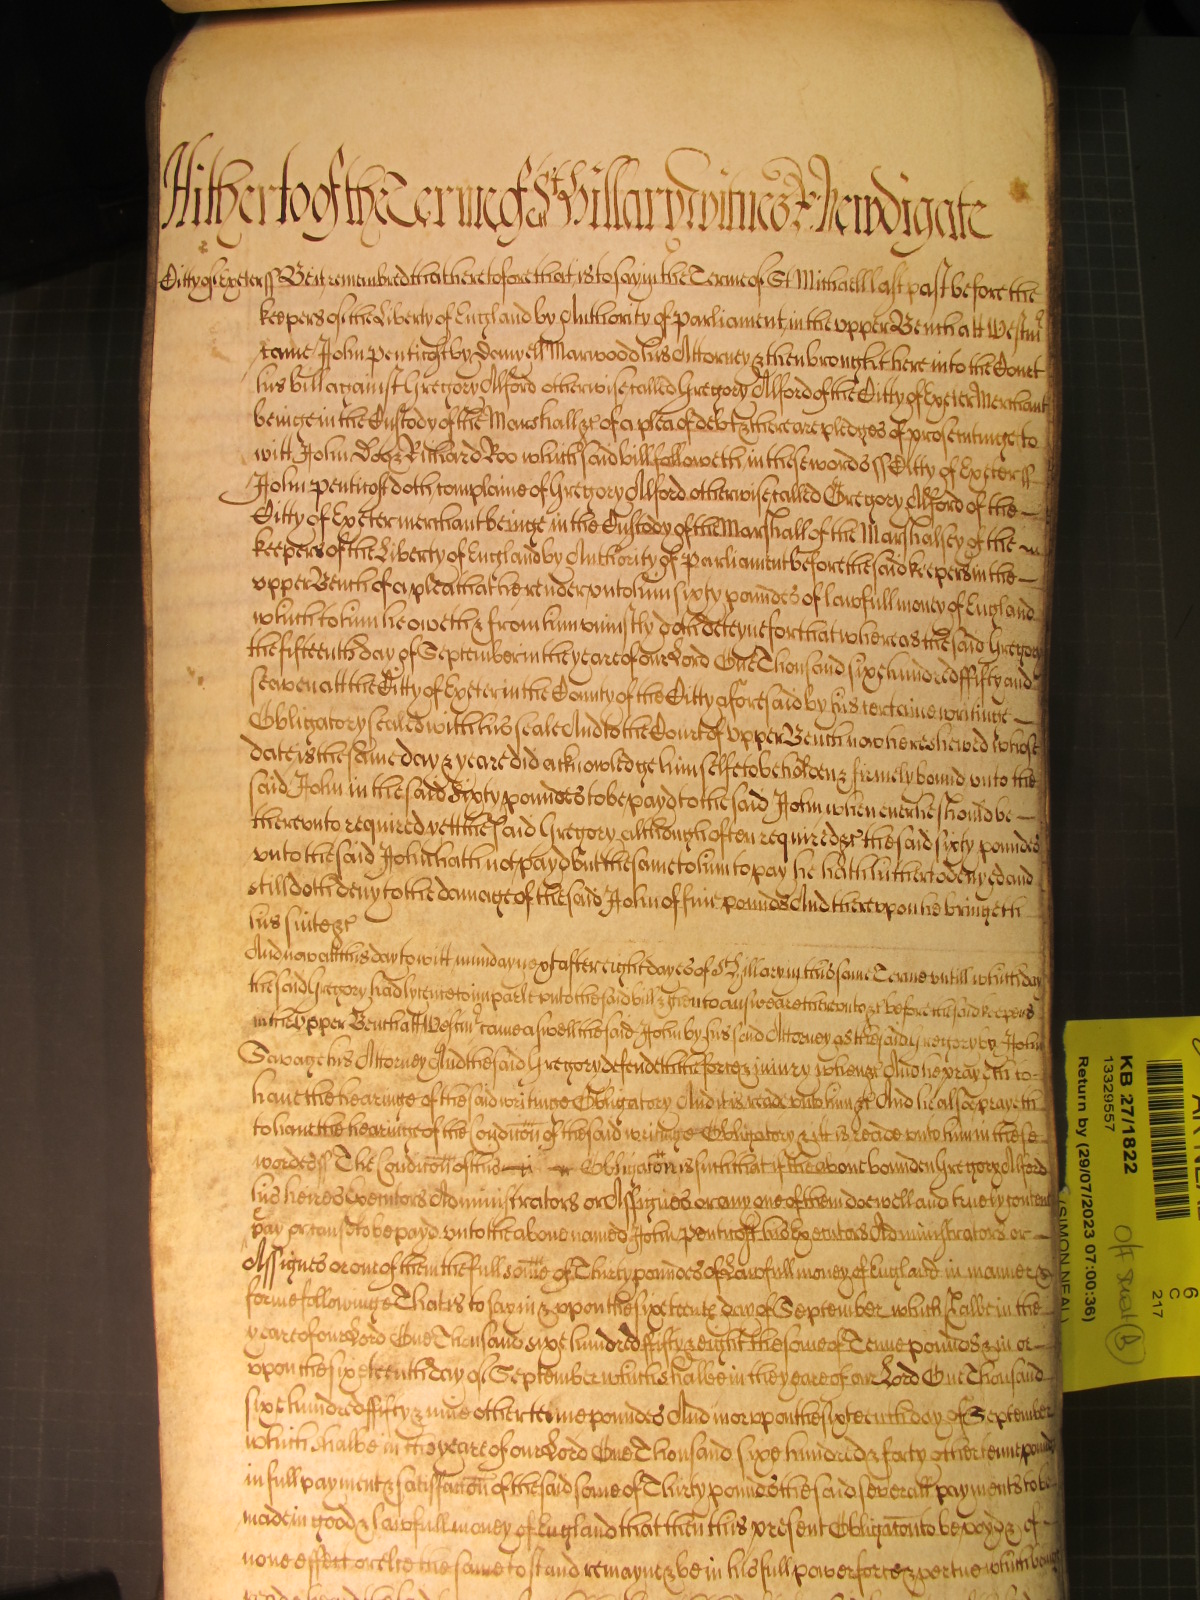 Hitherto of the Terme of St Hillary witnes R: Newdigate
Citty of Exeter ss Be it remembred that heretofore that is to say in the Terme of St Michaell last past before the
keepers of the Liberty of England by Authority of Parliament in the upper Bench att Westmr
came John Penticost by Marwood his Attorney & then brought here into the Court
his bill against Gregory Alford otherwise called Gregory Alford of the Citty of Exeter Merchant
beinge in the Custody of the Marshall &c of a plea of debt & there are pledges of prosecutinge to
witt John Doo & Richard Roo which said bill followeth in these words ss Citty of Exeter ss
John Penticost doth complaine of Gregory Alford otherwise called Gregory Alford of the
Citty of Exeter merchant beinge in the Custody of the Marshall of the Marshalsey of the
keepers of the Liberty of England by Authority of Parliament before the said keepers in the
upper Bench of a plea that he render unto him sixty poundes of lawfull money of England
which to him he oweth & from him uniustly doth deteyne for that whereas the said Gregory
the fifteenth day of September in the yeare of our Lord One Thousand sixe hundred fifty and
seaven att the Citty of Exeter in the County of the Citty aforesaid by his certaine writinge
Obligatory sealed with his seale And to the Court of upper Bench now here shewed whose
date is the same day & yeare did acknowledge himselfe to be holden & firmely bound unto the
said John in the said sixty poundes to be payd to the said John when ever he should be
thereunto required yett the said Gregory although often required &c the said sixty poundes
unto the said John hath not payd but the same to him to pay he hath hitherto denyed and
still doth deny to the damage of the said John of five poundes And thereupon he bringeth
his suite &c
And now att this day to witt munday next after eight dayes of St Hillary in this same Terme untill which day
the said Gregory had lycence to imparle unto the said bill & then to answeare thereunto &c before the said keepers
in the Upper Bench att Westmr came aswell the said John by his said Attorney as the said Gregory by John
Savage his Attorney And the said Gregory defendeth the force & iniury when &c And he prayeth to
have the hearinge of the said writinge Obligatory And it is reade unto him &c And he allsoe prayeth
to have the hearinge of the Condicon of the said writinge Obligatory & it is reade unto him in these
wordes ss The Condicon of this Obligacon is such that if the above bounden Gregory Alford
his heires Executors Administrators or Assignes or any one of them doe well and truely content
pay or cause to be payd unto the above named John Penticost his Executors Administrators or
Assignes or one of them the full some of Thirty poundes of Lawfull money of England in manner &
forme followinge That is to say in & upon the sixteenth day of September which shalbe in the
yeare of our Lord One Thousand sixe hundred fifty & eight the some of Tenne poundes & in or
upon the sixteenth day of September which shalbe in the yeare of our Lord One Thousand
sixe hundred fifty & nine other tenne poundes And in or uppon the sixteenth day of September
which shalbe in the yeare of our Lord One Thousand sixe hundred & forty other tenne pounds
in full payment & satisfaccon of the said some of Thirty poundes the said severall payments to be
made in good & lawfull money of England that then this present Obligacon to be voyd & of
none effect or else the same to stand remayne & be in his full power force & vertue which beinge
KB 27/1822
13329557
Return by (29/07/2023 07:00:36)
(SIMON NEAL)
6
C
217